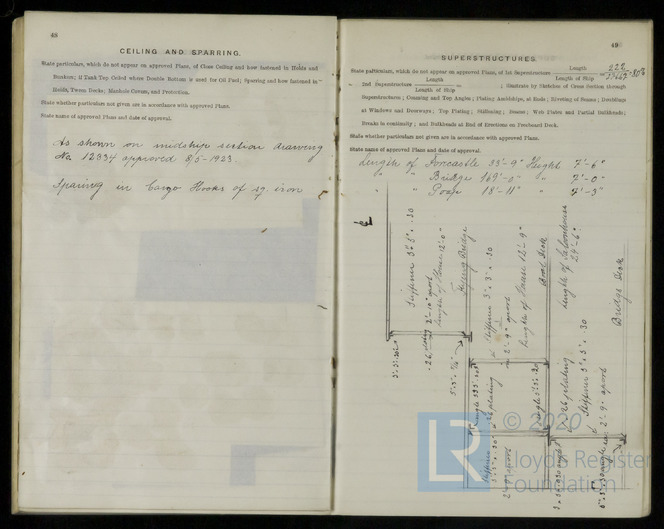 48
CEILING AND SPARRING.
State particulars, which do not appear on approved Plans, of Close Ceiling and how fastened in Holds and
Bunkers; if Tank Top Ceiled where Double Bottom is used for Oil Fuel; Sparring and how fastened in
Holds, Tween Decks; Manhole Covers, and Protection.
State whether particulars not given are in accordance with approved Plans.
State name of approved Plans and date of approval.
As shown on midship section drawing
No. 12334 approved 8/5-1923.
Sparing in Cargo Hooks of sq. iron
49
SUPERSTRUCTURES.
State particulars, which do not appear on approved Plans, of 1st Superstructure Length / Length of Ship = 222 80%
" 2nd Superstructure Length / Length of Ship = ; illustrate by Sketches of Cross Section through
Superstructures; Coaming and Top Angles; Plating Amidships, at Ends; Riveting of Seams; Doublings
at Windows and Doorways; Top Plating; Stiffening; Beams; Web Plates and Partial Bulkheads;
Breaks in continuity; and Bulkheads at End of Erections on Freeboard Deck.
State whether particulars not given are in accordance with approved Plans.
State name of approved Plans and date of approval.
Length of Forecastle 33'-9" Height 7'-6"
" " Bridge 169'-0" " 7'-0"
" " Poop 18'-11" " 7'-3"
Stiffener 3" 3" .30
.26 plating 2'-10" apart
Length of House 12'-0"
Flying Bridge
Stiffener 3" . 3" . .30
2'-9" apart
Length of House 13'-9"
Boat Deck
Length of Saloonhouse
24'-6"
.26 plating
Stiffener 3" x 3" . .30
2'-9" apart
Bridge deck
.26 plating
© 2020
LR
Lloyd's Register
Foundation